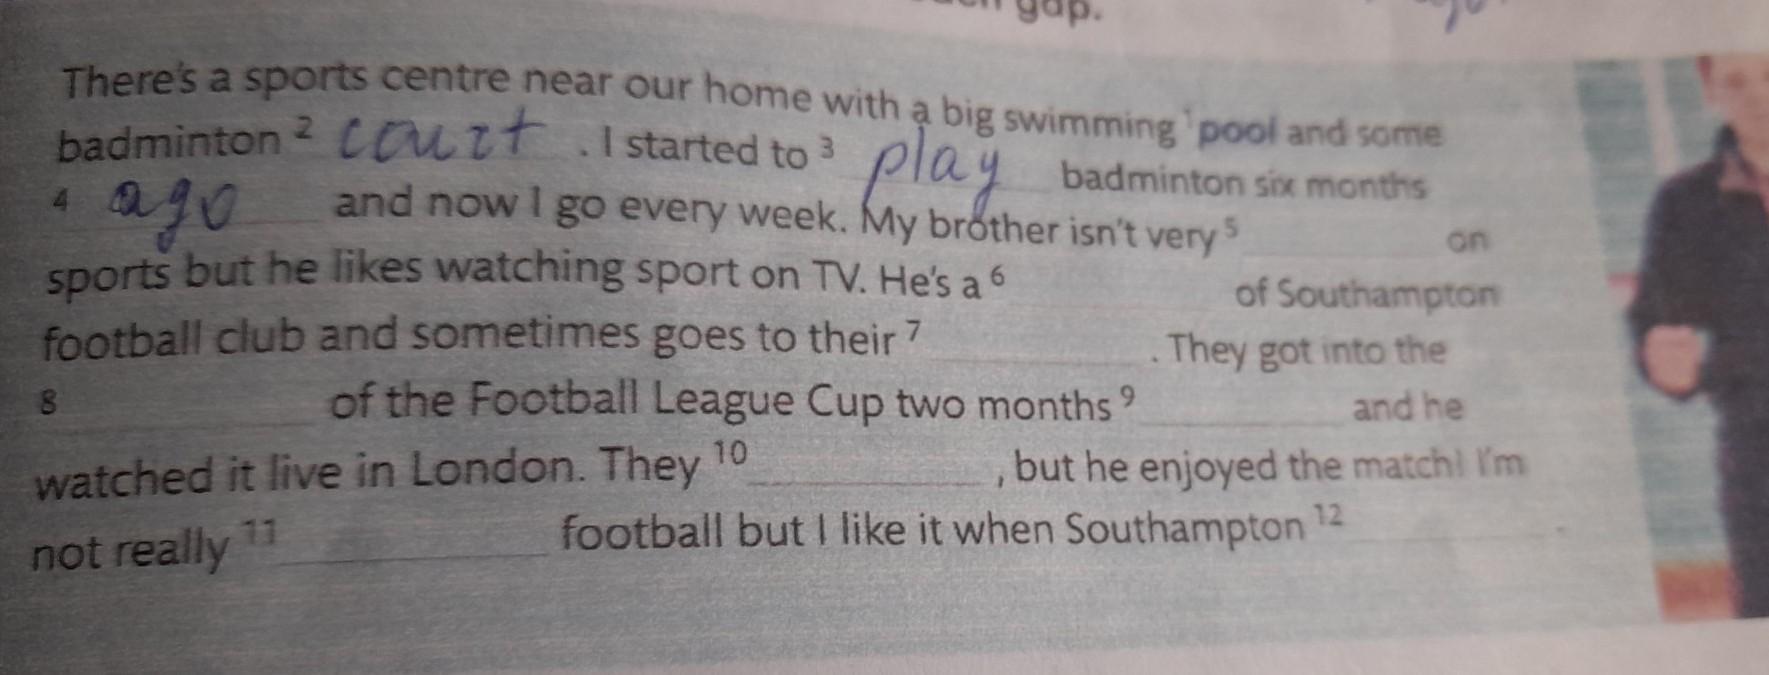 gap.
There's a sports centre near our home with a big swimming 1 pool and some
badminton 2 court . I started to 3 play badminton six months
4 ago and now I go every week. My brother isn't very 5 on
sports but he likes watching sport on TV. He's a 6 of Southampton
football club and sometimes goes to their 7 . They got into the
8 of the Football League Cup two months 9 and he
watched it live in London. They 10 , but he enjoyed the match! I'm
not really 11 football but I like it when Southampton 12 .